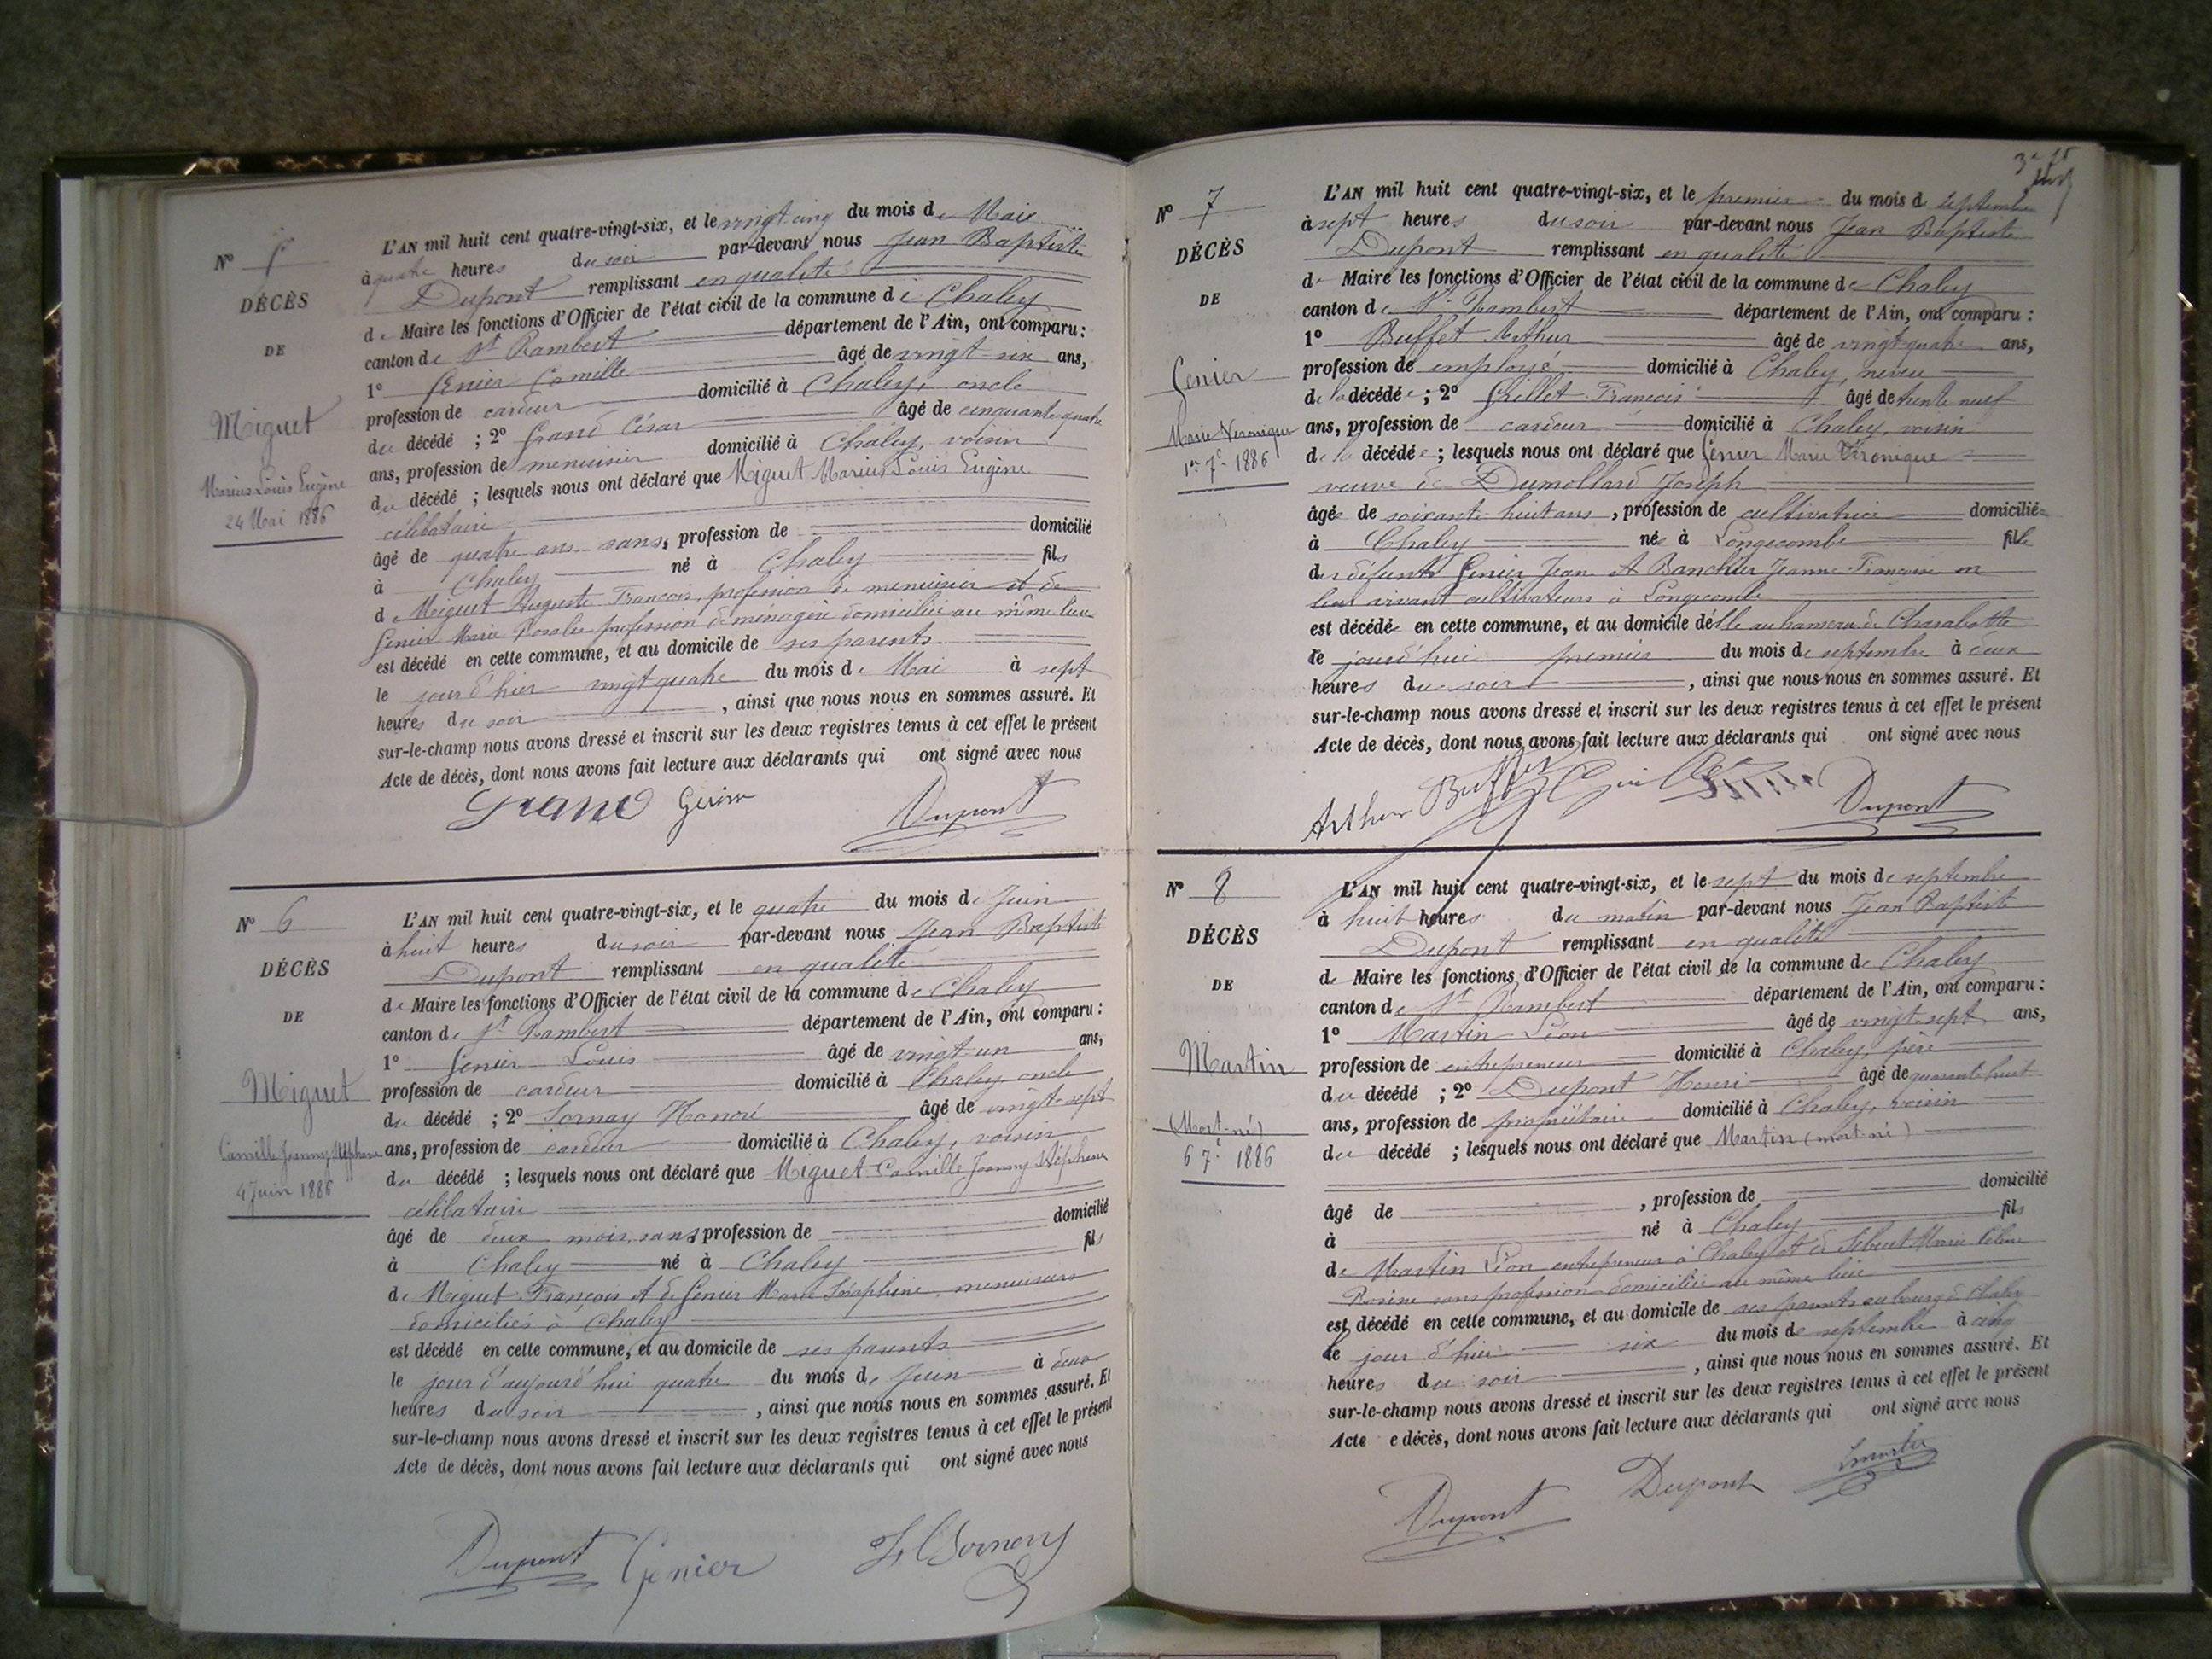 N° 5
DÉCÈS
DE
Miguet
Marius Louis Eugène
24 Mai 1886
L'AN mil huit cent quatre-vingt-six, et le vingt cinq du mois de Mai
à quatre heures du soir par-devant nous Jean Baptiste
Dupont remplissant en qualité
de Maire les fonctions d'Officier de l'état civil de la commune de Chaley
canton de St Rambert département de l'Ain, ont comparu :
1° Genier Camille âgé de vingt-six ans,
profession de cardeur domicilié à Chaley, oncle
du décédé ; 2° Grand César âgé de cinquante quatre
ans, profession de menuisier domicilié à Chaley, voisin
du décédé ; lesquels nous ont déclaré que Miguet Marius Louis Eugène
célibataire
âgé de quatre ans sans, profession de domicilié
à Chaley né à Chaley fils
de Miguet Auguste François, profession de menuisier et de
Genier Marie Rosalie profession de ménagère domiciliée au même lieu
est décédé en cette commune, et au domicile de ses parents
le jour d'hier vingt quatre du mois de Mai à sept
heures du soir , ainsi que nous nous en sommes assuré. Et
sur-le-champ nous avons dressé et inscrit sur les deux registres tenus à cet effet le présent
Acte de décès, dont nous avons fait lecture aux déclarants qui ont signé avec nous
Grand Dupont
N° 6
DÉCÈS
DE
Miguet
Camille Joanny Stéphane
4 Juin 1886
L'AN mil huit cent quatre-vingt-six, et le quatre du mois de Juin
à huit heures du soir par-devant nous Jean Baptiste
Dupont remplissant en qualité
de Maire les fonctions d'Officier de l'état civil de la commune de Chaley
canton de St Rambert département de l'Ain, ont comparu :
1° Genier Louis âgé de vingt-un ans,
profession de cardeur domicilié à Chaley oncle
du décédé ; 2° Sornay Honoré âgé de vingt-sept
ans, profession de cardeur domicilié à Chaley, voisin
du décédé ; lesquels nous ont déclaré que Miguet Camille Joanny Stéphane
célibataire
âgé de deux mois, sans, profession de domicilié
à Chaley né à Chaley fils
de Miguet François et de Genier Marie Séraphine, menuisiers
domiciliés à Chaley
est décédé en cette commune, et au domicile de ses parents
le jour d'aujourd'hui quatre du mois de Juin à deux
heures du soir , ainsi que nous nous en sommes assuré. Et
sur-le-champ nous avons dressé et inscrit sur les deux registres tenus à cet effet le présent
Acte de décès, dont nous avons fait lecture aux déclarants qui ont signé avec nous
Dupont Genier H Sornay
N° 7
DÉCÈS
DE
Genier
Marie Véronique
1er 7e 1886
L'AN mil huit cent quatre-vingt-six, et le premier du mois d septembre
à sept heures du soir par-devant nous Jean Baptiste
Dupont remplissant en qualité
de Maire les fonctions d'Officier de l'état civil de la commune de Chaley
canton de St Rambert département de l'Ain, ont comparu :
1° Buffet Arthur âgé de vingt quatre ans,
profession de employé domicilié à Chaley, neveu
de la décédée ; 2° Grillet François âgé de trente neuf
ans, profession de cardeur domicilié à Chaley, voisin
de la décédée ; lesquels nous ont déclaré que Genier Marie Véronique
veuve de Dumollard Joseph
âgée de soixante huit ans , profession de cultivatrice domiciliée
à Chaley née à Longecombe fille
des défunts Genier Jean et Banchter Jeanne Françoise en
leur vivant cultivateurs à Longecombe
est décédée en cette commune, et au domicile d'elle au hameau de Charabotte
le jourd'hui premier du mois de septembre à deux
heures du soir , ainsi que nous nous en sommes assuré. Et
sur-le-champ nous avons dressé et inscrit sur les deux registres tenus à cet effet le présent
Acte de décès, dont nous avons fait lecture aux déclarants qui ont signé avec nous
Arthur Buffet Dupont
N° 8
DÉCÈS
DE
Martin
(Mort-né)
6 7e 1886
L'AN mil huit cent quatre-vingt-six, et le sept du mois de septembre
à huit heures du matin par-devant nous Jean Baptiste
Dupont remplissant en qualité
de Maire les fonctions d'Officier de l'état civil de la commune de Chaley
canton de St Rambert département de l'Ain, ont comparu :
1° Martin Léon âgé de vingt-sept ans,
profession de entrepreneur domicilié à Chaley, père
du décédé ; 2° Dupont Henri âgé de quarante huit
ans, profession de propriétaire domicilié à Chaley, voisin
du décédé ; lesquels nous ont déclaré que Martin (mort-né)
âgé de , profession de domicilié
à né à Chaley fils
de Martin Léon entrepreneur à Chaley et de Marie
Rosine sans profession domiciliée au même lieu
est décédé en cette commune, et au domicile de ses parents au bourg de Chaley
le jour d'hier six du mois de septembre à cinq
heures du soir , ainsi que nous nous en sommes assuré. Et
sur-le-champ nous avons dressé et inscrit sur les deux registres tenus à cet effet le présent
Acte e décès, dont nous avons fait lecture aux déclarants qui ont signé avec nous
Dupont Dupont